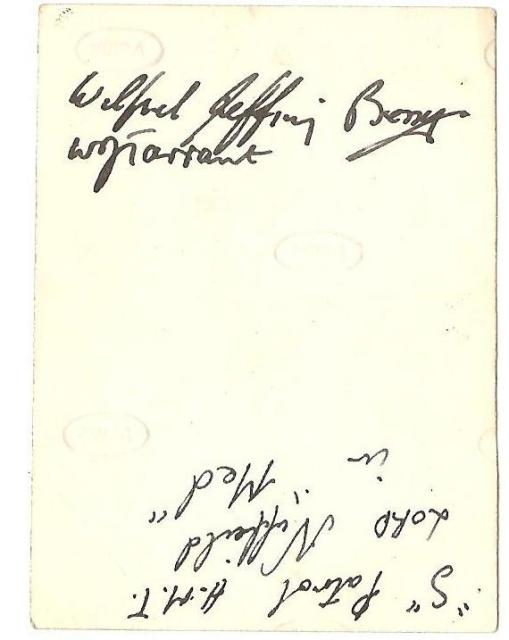 Wilfred Jeffrey Berry
W Tarrant
"S" Patrol H.M.T.
LORD Nuffield
in "Med"